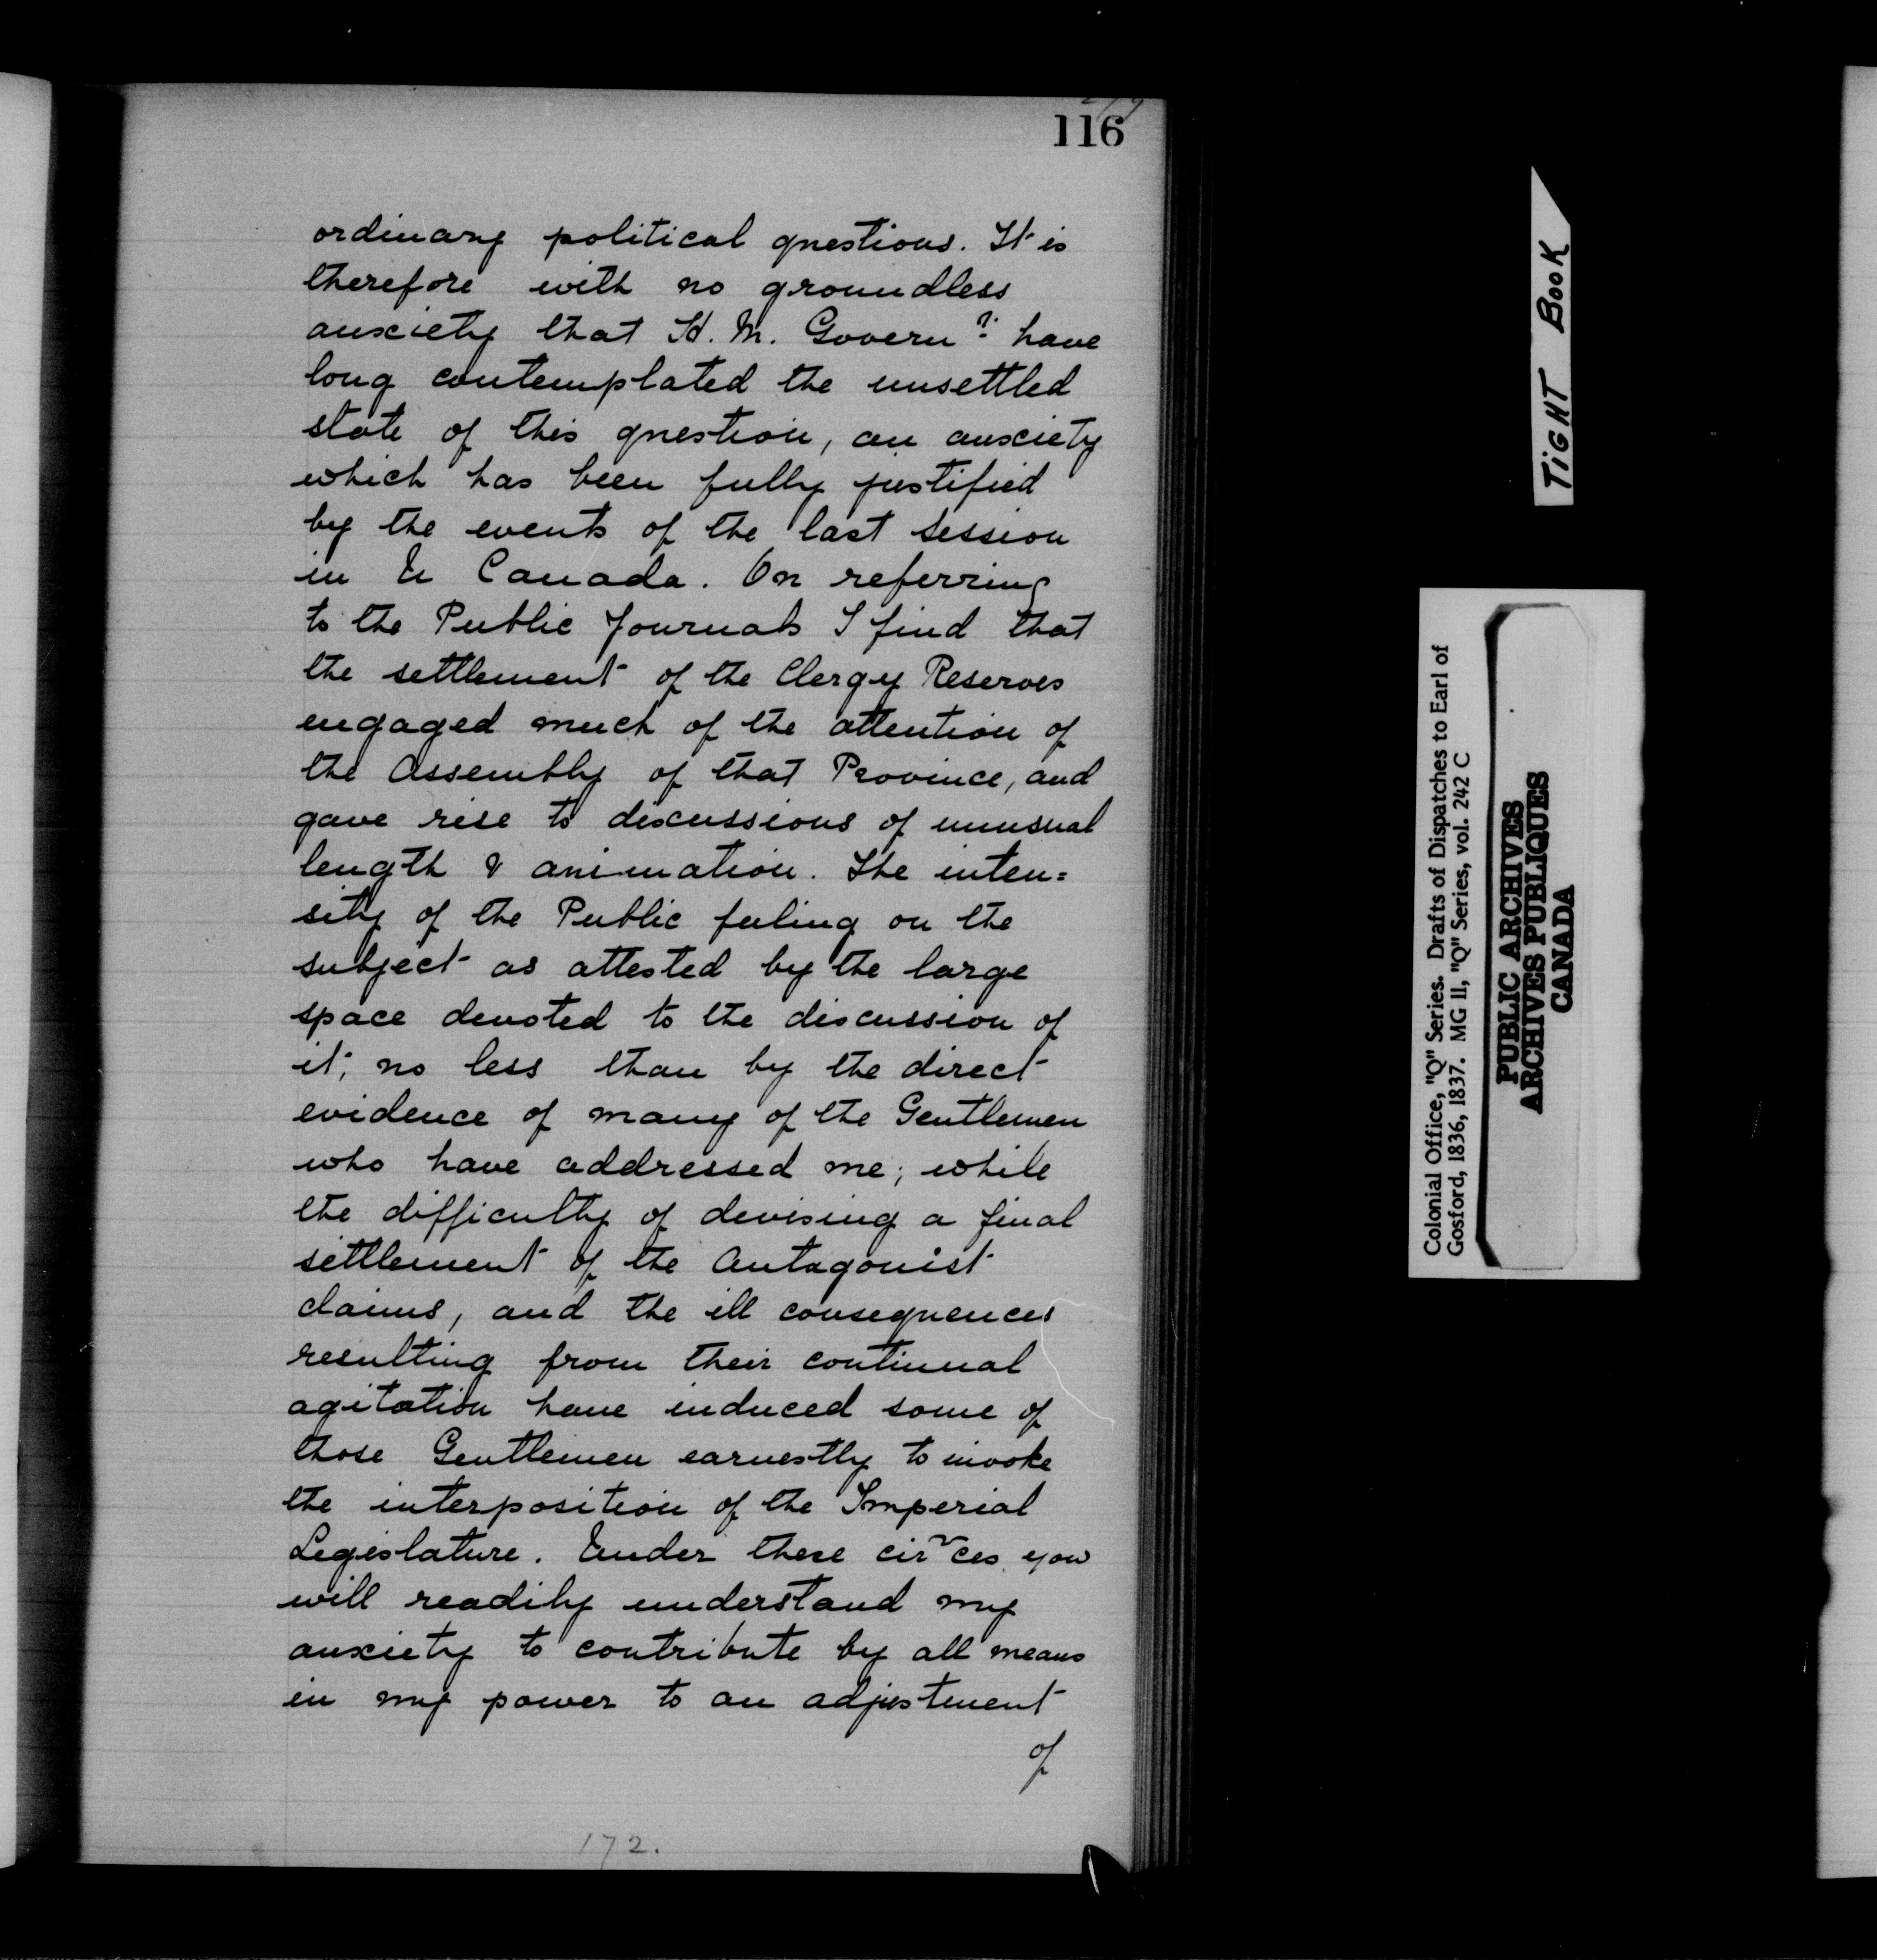 116
ordinary political questions. It is
therefore with no groundless
anxiety that H. M. Govern.t have
long contemplated the unsettled
state of this question, an anxiety
which has been fully justified
by the events of the last session
in U Canada. On referring
to the Public Journals I find that
the settlement of the Clergy Reserves
engaged much of the attention of
the Assembly of that Province, and
gave rise to discussions of unusual
length & animation. The inten=
sity of the Public feeling on the
subject as attested by the large
space devoted to the discussion of
it, no less than by the direct
evidence of many of the Gentlemen
who have addressed me; while
the difficulty of devising a final
settlement of the Antagonist
claims, and the ill consequences
resulting from their continual
agitation have induced some of
those Gentlemen earnestly to invoke
the interposition of the Imperial
Legislature. Under these cir~ces you
will readily understand my
anxiety to contribute by all means
in my power to an adjustment
of
172.
TIGHT BOOK
Colonial Office, "Q" Series. Drafts of Dispatches to Earl of
Gosford, 1836, 1837. MG 11, "Q" Series, vol. 242 C
PUBLIC ARCHIVES
ARCHIVES PUBLIQUES
CANADA